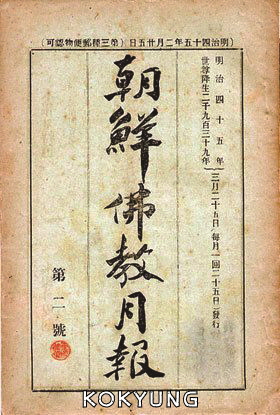 (明治四十五年二月廿五日)(第三種郵便物認可)
明治四十五年
世尊降生二千九百三十九年
(三月二十五日)(每月一回二十五日)發行
朝鮮佛教月報
第二號
KOKYUNG